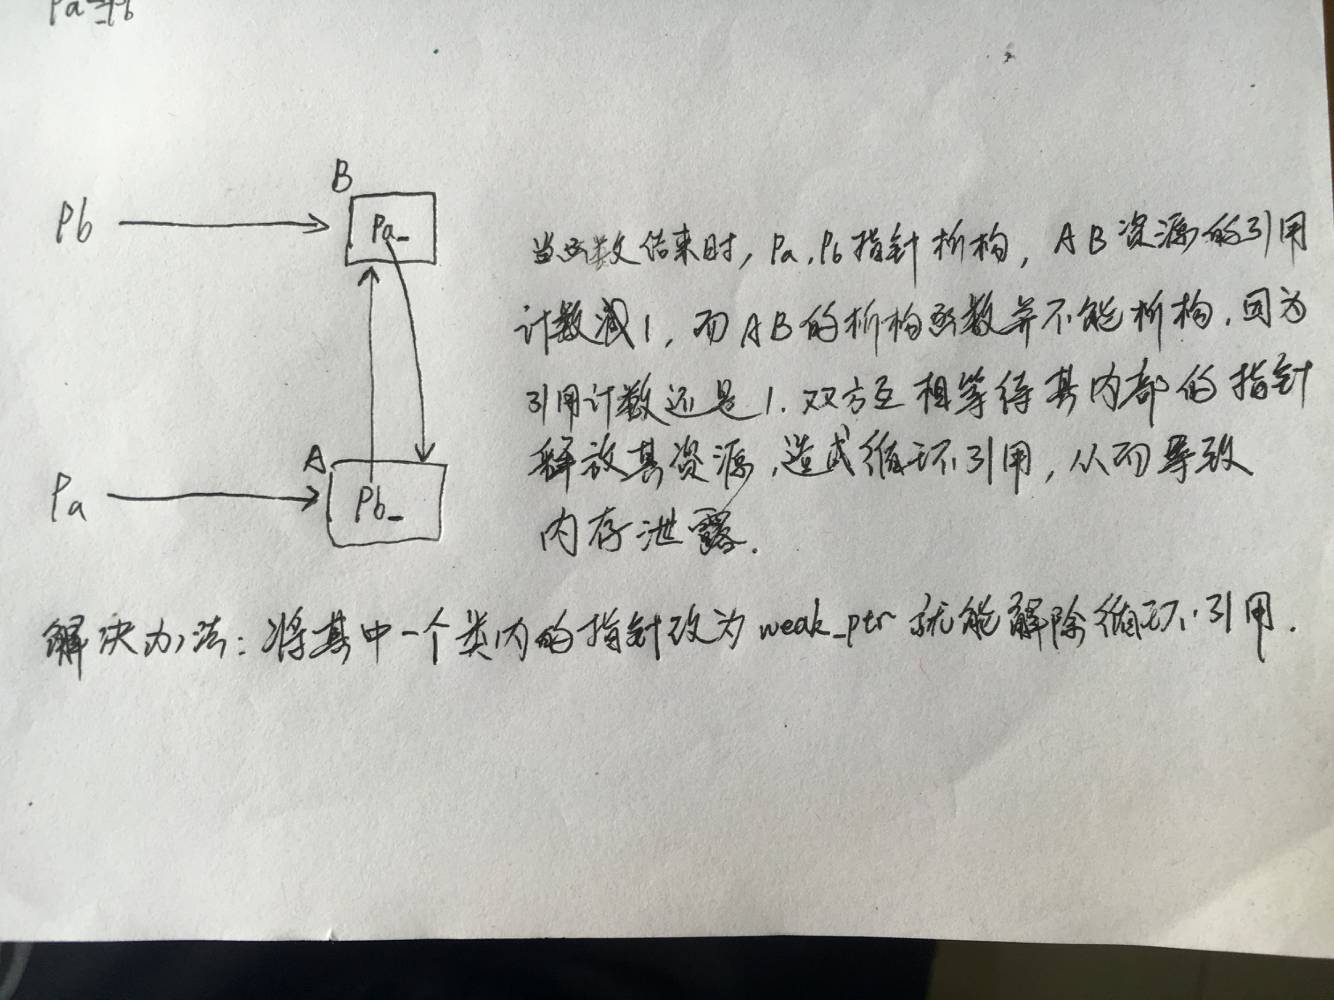 B
Pb
Pa_
当函数结束时，Pa，Pb指针析构，AB资源的引用
计数减1，而AB的析构函数并不能析构，因为
引用计数还是1．双方互相等待其内部的指针
释放其资源，造成循环引用，从而导致
内存泄露．
A
Pa
Pb_
解决办法：将其中一个类内的指针改为weak_ptr就能解除循环引用．